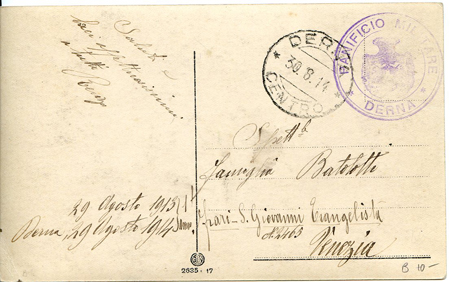 Saluti e
baci affettuosissimi
a tutti
DERNA
30.8.14
* CENTRO *
PANIFICIO MILITARE
* DERNA *
Spett.
Famiglia Batolotti
Frari - S. Giovanni Evangelista
N. 2465
Venezia
29 Agosto 1913
Derna, 29 Agosto 1914
2635 - 17
B 10-